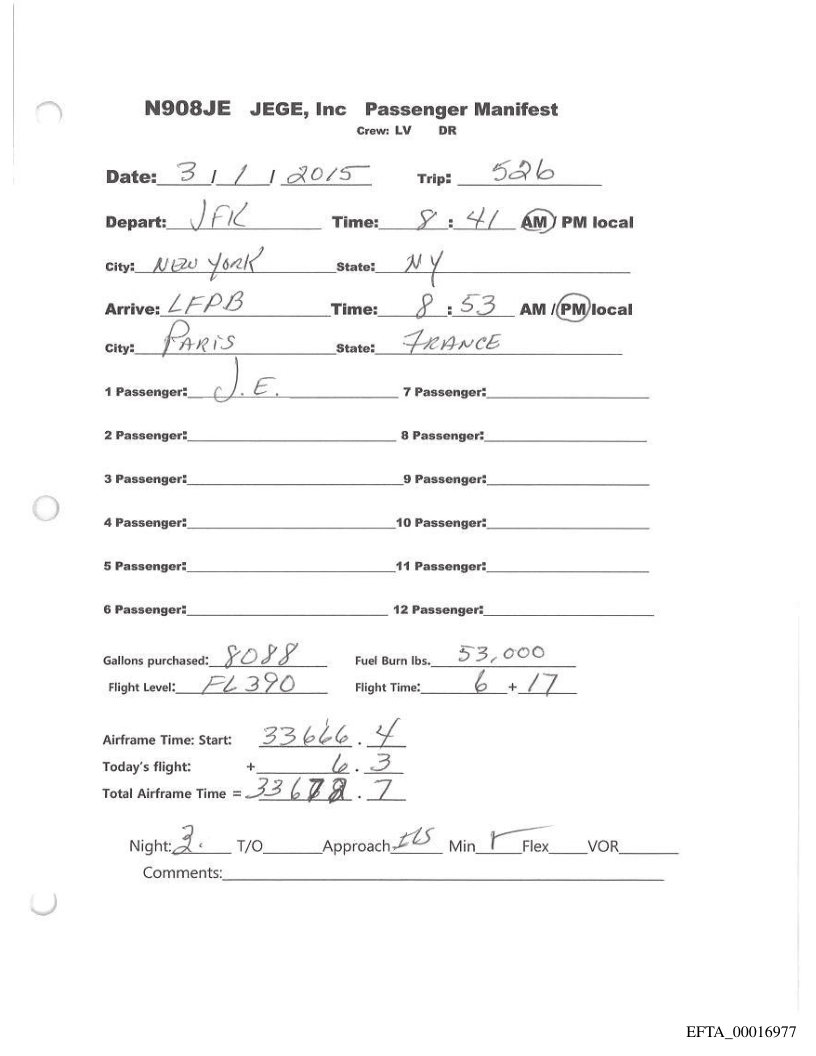 N908JE JEGE, Inc Passenger Manifest
Crew: LV DR
Date: 3 / 1 / 2015 Trip: 526
Depart: JFK Time: 8 : 41 AM / PM local
City: NEW YORK State: NY
Arrive: LFPB Time: 8 : 53 AM / PM local
City: PARIS State: FRANCE
1 Passenger: J.E. 7 Passenger:
2 Passenger: 8 Passenger:
3 Passenger: 9 Passenger:
4 Passenger: 10 Passenger:
5 Passenger: 11 Passenger:
6 Passenger: 12 Passenger:
Gallons purchased: 8088 Fuel Burn lbs. 53,000
Flight Level: FL 390 Flight Time: 6 + 17
Airframe Time: Start: 33666 . 4
Today's flight: + 6 . 3
Total Airframe Time = 33672 . 7
Night: T/O Approach ILS Min Flex VOR
Comments:
EFTA_00016977